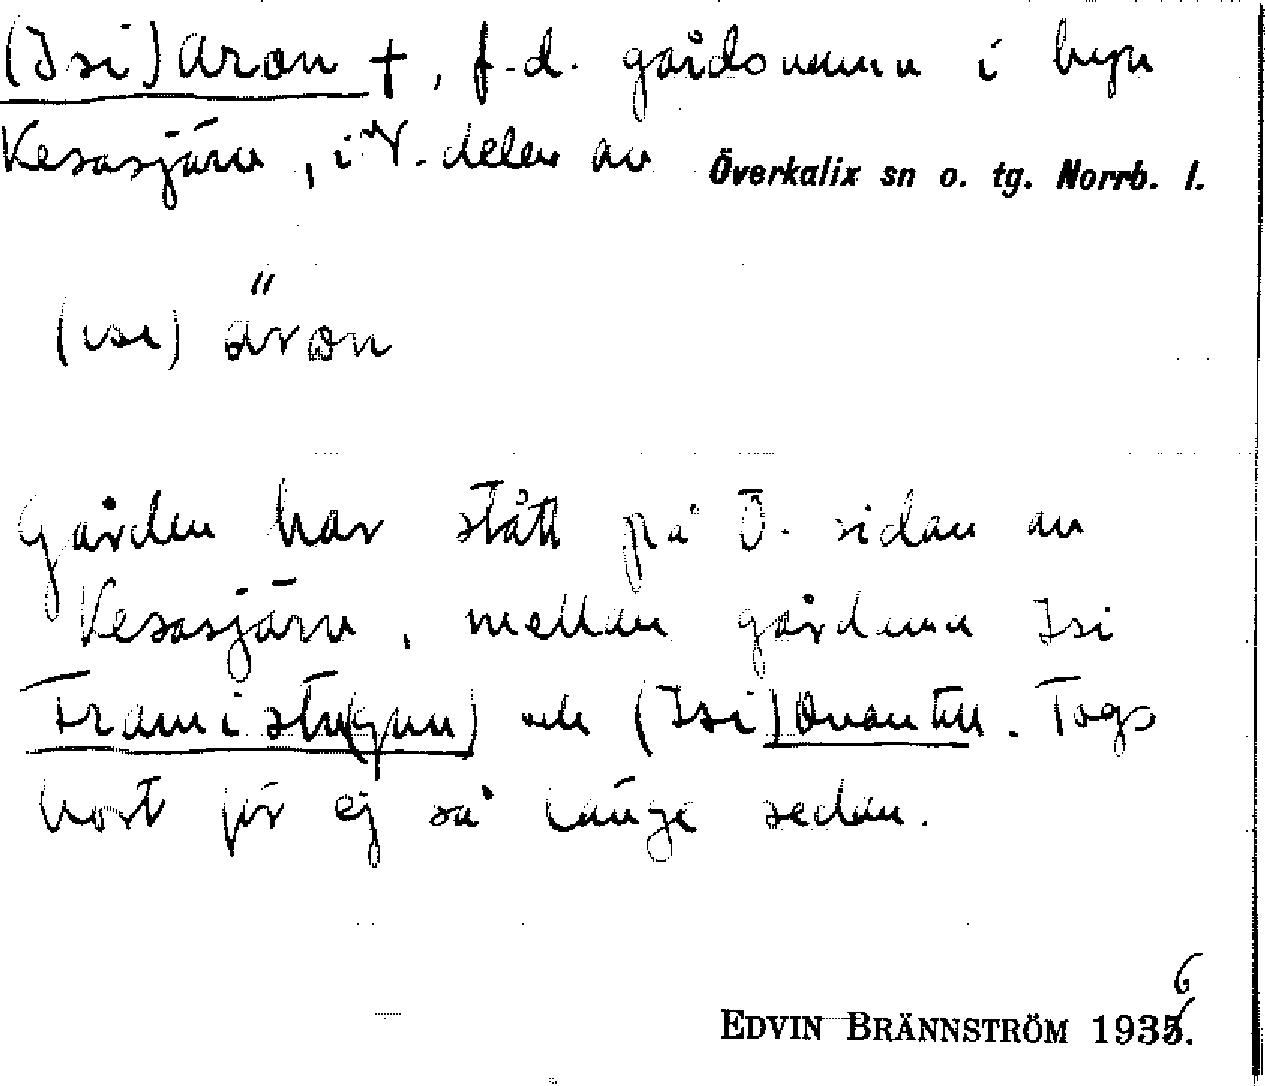 (Isi) Aron †, f.d. gårdsnamn i byn
Kesasjärv, i V. delen av Överkalix sn o. tg. Norrb. l.
(ısı) äron
Gården har stått på Ö. sidan av
Kesasjärv, mellan gårdarna Isi
Framistu(gun) och (Isi) . Togs
bort för ej så länge sedan.
EDVIN BRÄNNSTRÖM 1936.